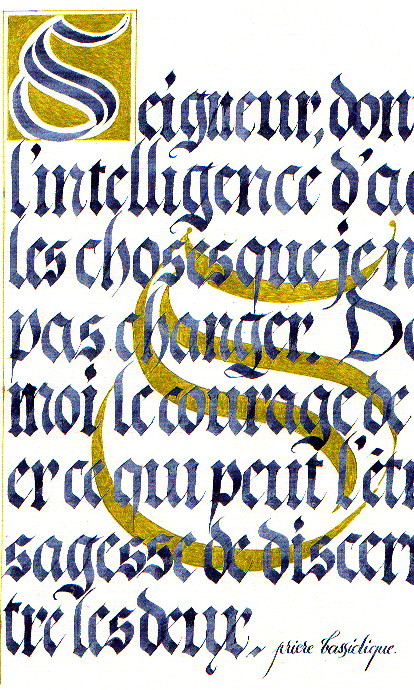 Seigneur, don
l'intelligence d'ac
les choses que je n
pas changer. Do
moi le courage de
er ce qui peut l'êt
sagesse de discern
tre les deux.
priere bassidique.